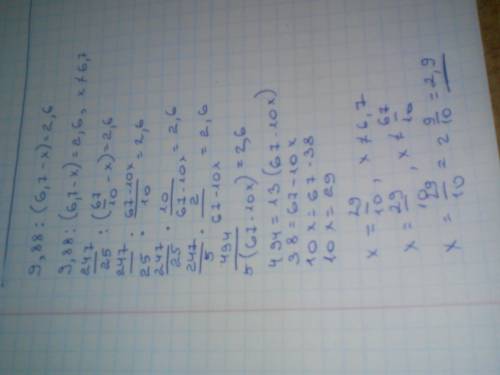 9,88 : (6,7 - x) = 2,6
9,88 : (6,7 - x) = 2,6, x ≠ 6,7
247/25 : (67/10 - x) = 2,6
247/25 : (67-10x)/10 = 2,6
247/25 · 10/(67-10x) = 2,6
247/5 · 2/(67-10x) = 2,6
494/(5(67-10x)) = 2,6
494 = 13 (67-10x)
38 = 67-10x
10x = 67-38
10x = 29
x = 29/10, x ≠ 6,7
x = 29/10, x ≠ 67/10
x = 29/10 = 2 9/10 = 2,9